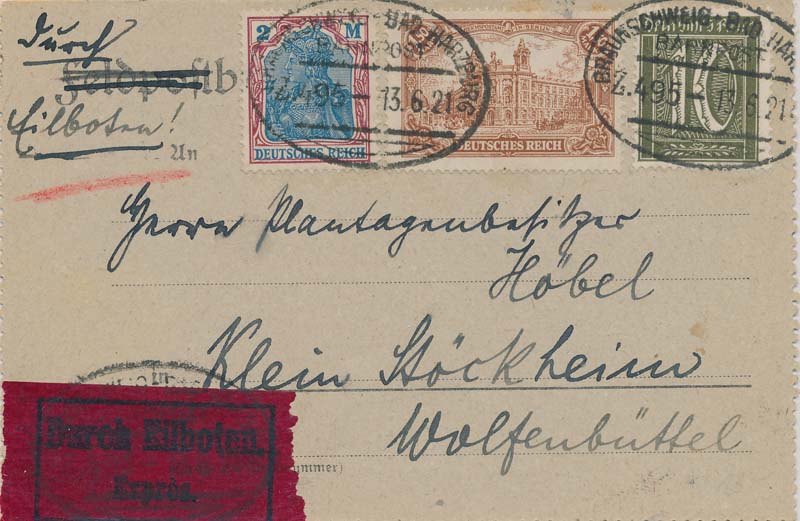 durch
Feldpostb
Eilboten!
An
2 M
DEUTSCHES REICH
DEUTSCHES REICH
BAD HARZBURG
BAHNPOST
Z.495 13.6.21
BRAUNSCHWEIG - BAD HARZ
BAHNPOST
Z.495 13.6.21
10
Herrn Plantagenbesitzer
Höbel
Klein Stöckheim
Wolfenbüttel
Durch Eilboten.
Exprès.
ummer)